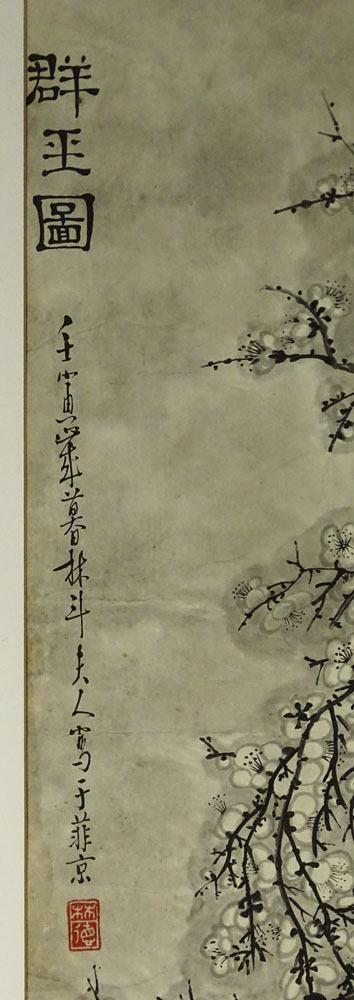 群玉圖
壬寅歲暮林斗夫人寫于菲京
林德